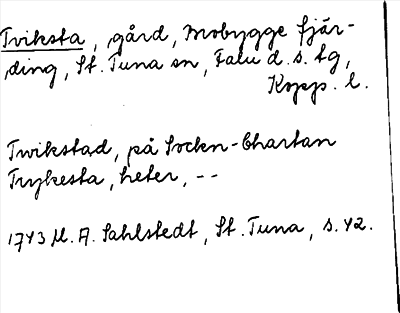 Tviksta, gård, Mobygge fjär-
ding, St. Tuna sn, Falu d. s. tg,
Kopp. l.
Twikstad, på Sockn-Chartan
Trykesta, heter, --
1743 M. A. Sahlstedt, St. Tuna, s. 42.